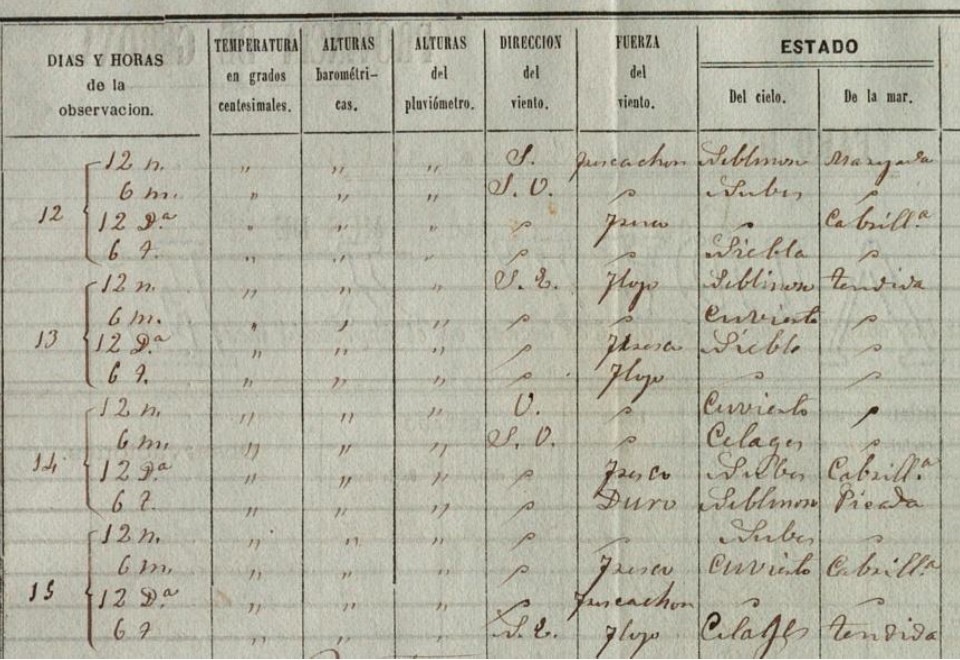 DIAS Y HORAS de la observacion. | TEMPERATURA en grados centesimales. | ALTURAS barométri-cas. | ALTURAS del pluviómetro. | DIRECCION del viento. | FUERZA del viento. | ESTADO Del cielo. | De la mar.
12 12 n. " " " S. frescachon Neblinoso Marejada
6 m. " " " S. O. " Nubes "
12 D.ª " " " " fresco " Cabrill.ª
6 t. " " " " " Niebla "
13 12 n. " " " S. E. flojo Neblinoso tendida
6 m. " " " " " Cuvierto "
12 D.ª " " " " fresco Niebla "
6 t. " " " " flojo " "
14 12 n. " " " O. " Cuvierto "
6 m. " " " S. O. " Celages "
12 D.ª " " " " fresco Nubes Cabrill.ª
6 t. " " " " Duro Neblinoso Picada
15 12 n. " " " " " Nubes "
6 m. " " " " fresco Cuvierto Cabrill.ª
12 D.ª " " " " frescachon " "
6 t " " " S. E. flojo Celages tendida